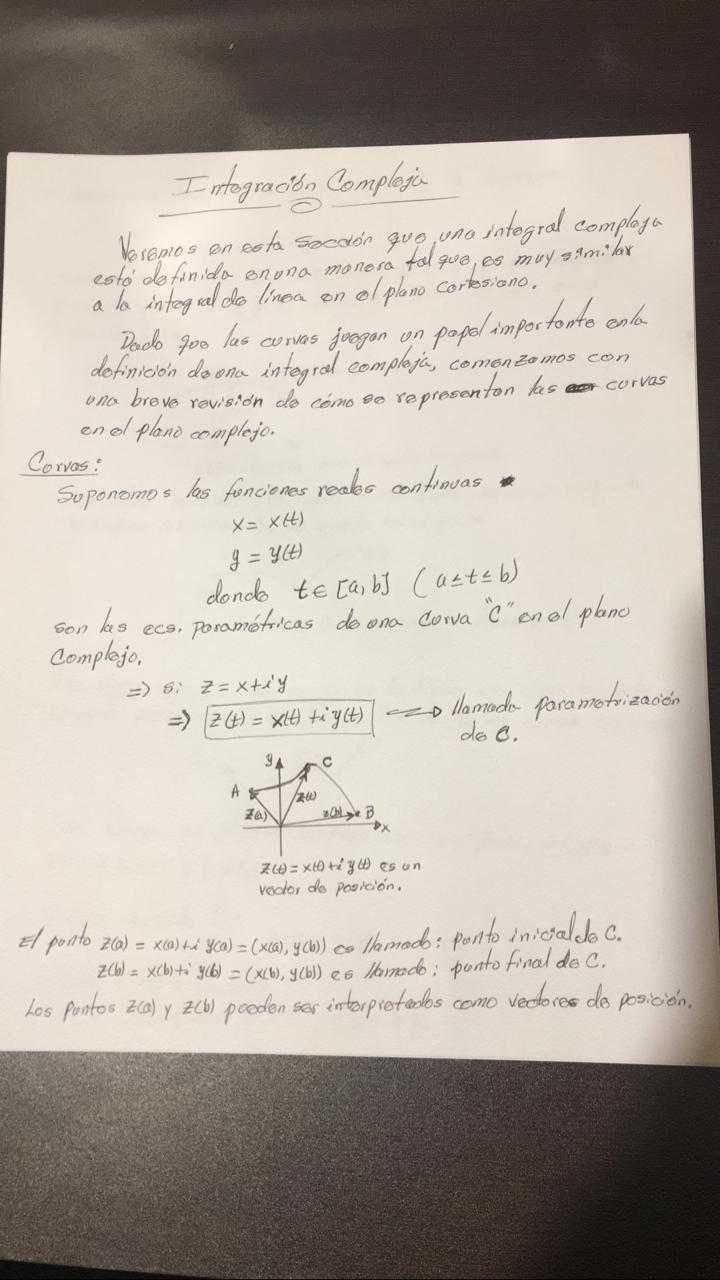 Integración Compleja
Veremos en esta sección que, una integral compleja
está definida en una manera tal que, es muy similar
a la integral de línea en el plano cartesiano.
Dado que las curvas juegan un papel importante en la
definición de una integral compleja, comenzamos con
una breve revisión de cómo se representan las curvas
en el plano complejo.
Curvas:
Suponemos las funciones reales continuas
x = x(t)
y = y(t)
donde t ∈ [a,b] (a ≤ t ≤ b)
son las ecs. paramétricas de una curva "C" en el plano
Complejo.
=> si z = x + iy
=> z(t) = x(t) + i y(t) => llamada parametrización
de C.
y
C
A
z(t)
z(a)
z(b)
B
x
z(t) = x(t) + i y(t) es un
vector de posición.
El punto z(a) = x(a) + i y(a) = (x(a), y(b)) es llamado: punto inicial de C.
z(b) = x(b) + i y(b) = (x(b), y(b)) es llamado: punto final de C.
Los puntos z(a) y z(b) pueden ser interpretados como vectores de posición.